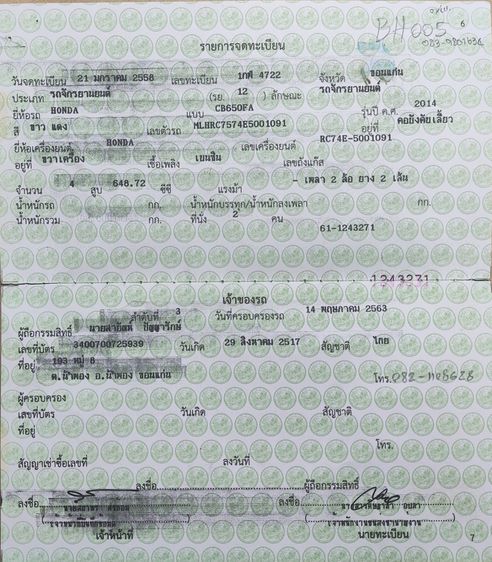 BH005 6
083-9801634
รายการจดทะเบียน
วันจดทะเบียน 21 มกราคม 2558 เลขทะเบียน 1กฬ 4722 จังหวัด ขอนแก่น
ประเภท รถจักรยานยนต์ (รย. 12) ลักษณะ รถจักรยานยนต์
ยี่ห้อรถ HONDA แบบ CB650FA รุ่นปี ค.ศ. 2014
สี ขาว แดง เลขตัวรถ MLHRC7574E5001091 อยู่ที่ คอบังคับเลี้ยว
ยี่ห้อเครื่องยนต์ HONDA เลขเครื่องยนต์ RC74E-5001091
อยู่ที่ ขวาเครื่อง เชื้อเพลิง เบนซิน เลขถังแก๊ส
จำนวน 4 สูบ 648.72 ซีซี แรงม้า - เพลา 2 ล้อ ยาง 2 เส้น
น้ำหนักรถ กก. น้ำหนักบรรทุก/น้ำหนักลงเพลา กก.
น้ำหนักรวม กก. ที่นั่ง 2 คน
61-1243271
1243271
เจ้าของรถ
ลำดับที่ 3 วันที่ครอบครองรถ 14 พฤษภาคม 2563
ผู้ถือกรรมสิทธิ์
เลขที่บัตร 3400700725939 วันเกิด 29 สิงหาคม 2517 สัญชาติ ไทย
ที่อยู่ 193 หมู่ 8
ต.น้ำพอง อ.น้ำพอง ขอนแก่น โทร.
ผู้ครอบครอง
เลขที่บัตร วันเกิด สัญชาติ
ที่อยู่
โทร.
สัญญาเช่าซื้อเลขที่ ลงวันที่
ลงชื่อ ผู้ถือกรรมสิทธิ์
ลงชื่อ ลงชื่อ
เจ้าหน้าที่ นายทะเบียน
7